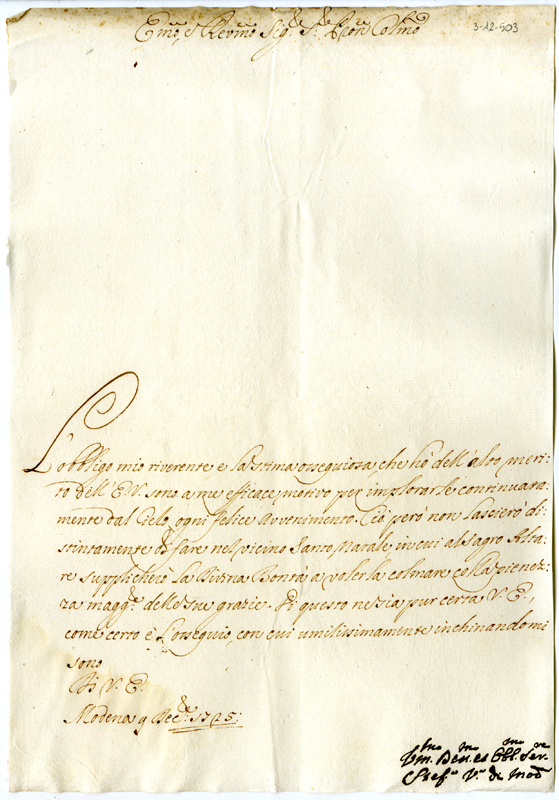 Emo, e Revmo Sigr. Sr. Pron Colmo
3-12-503
L'obbligo mio riverente, e la stima ossequiosa che hò dell'alto meri-
to dell'E.V. sono a me efficace motivo per implorarle continuata-
mente dal Cielo ogni felice Avvenimento. Ciò però non lascierò di-
stintamente di fare nel vicino Santo Natale, in cui al Sagro Alta-
re supplicherò la Divina Bontà a volerla colmare colla pienez-
za magge. delle sue grazie. Di questo ne sia pur certa V.E.,
come certo è l'ossequio, con cui umilissimamente inchinandomi
sono
Di V.E.
Modena 9 Decre. 1725:
Vmo. Den. et Obl. Ser.
Stefo. Vo. de Modª